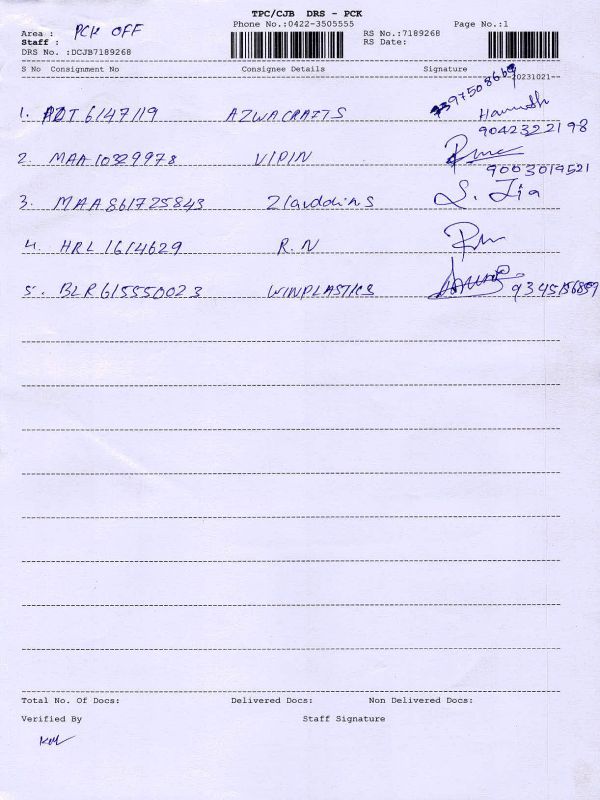 TPC/CJB DRS - PCK
Phone No.:0422-3505555 Page No.:1
Area : PCK OFF
RS No.:7189268
Staff :
RS Date:
DRS No. :DCJB7189268
S No Consignment No Consignee Details Signature
20231021
1. PDT 6147119 AZWACRAFTS
9042322198
2. MAA10329978 VIPIN
9003019521
3. MAA861725843 Ziauddin S S. Zia
4. HRL 1614629 R.N
5. BLR615550023 WINPLASTICS
Total No. Of Docs: Delivered Docs: Non Delivered Docs:
Verified By Staff Signature